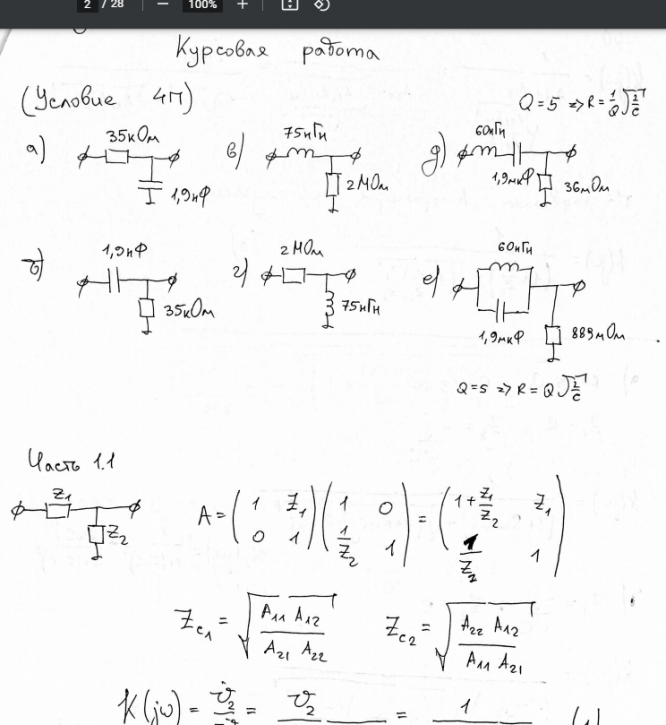 2 / 28 — 100% +
Курсовая работа
(Условие 4П)
Q = 5 => R = 1/Q √(L/C)
а) 35кОм 1,9нФ
в) 75нГн 2МОм
д) 60нГн 1,9мкФ 36мОм
б) 1,9нФ 35кОм
г) 2МОм 75нГн
е) 60нГн 1,9мкФ 889мОм
Q = 5 => R = Q √(L/C)
Часть 1.1
Z₁ Z₂
A = (1 Z₁; 0 1) (1 0; 1/Z₂ 1) = (1+Z₁/Z₂ Z₁; 1/Z₂ 1)
Zc₁ = √(A₁₁ A₁₂ / A₂₁ A₂₂) Zc₂ = √(A₂₂ A₁₂ / A₁₁ A₂₁)
K(jω) = = =